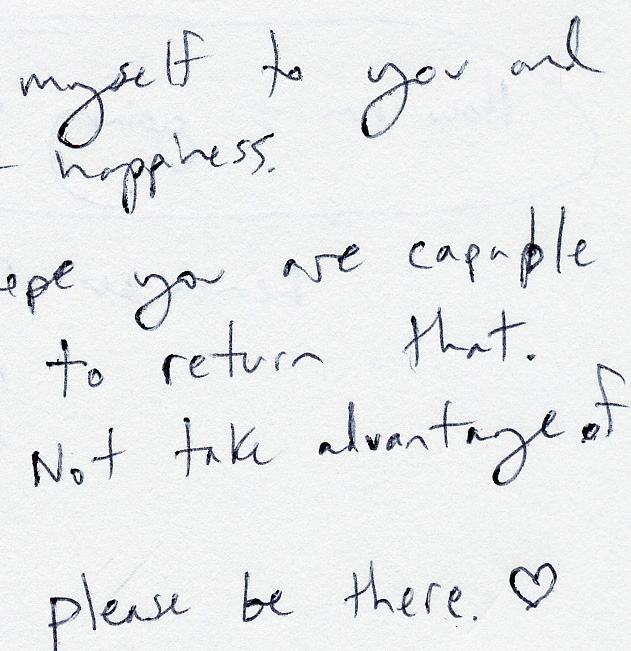 myself to you and
- happiness.
epe you are capable
to return that.
Not take advantage of
please be there. ♡